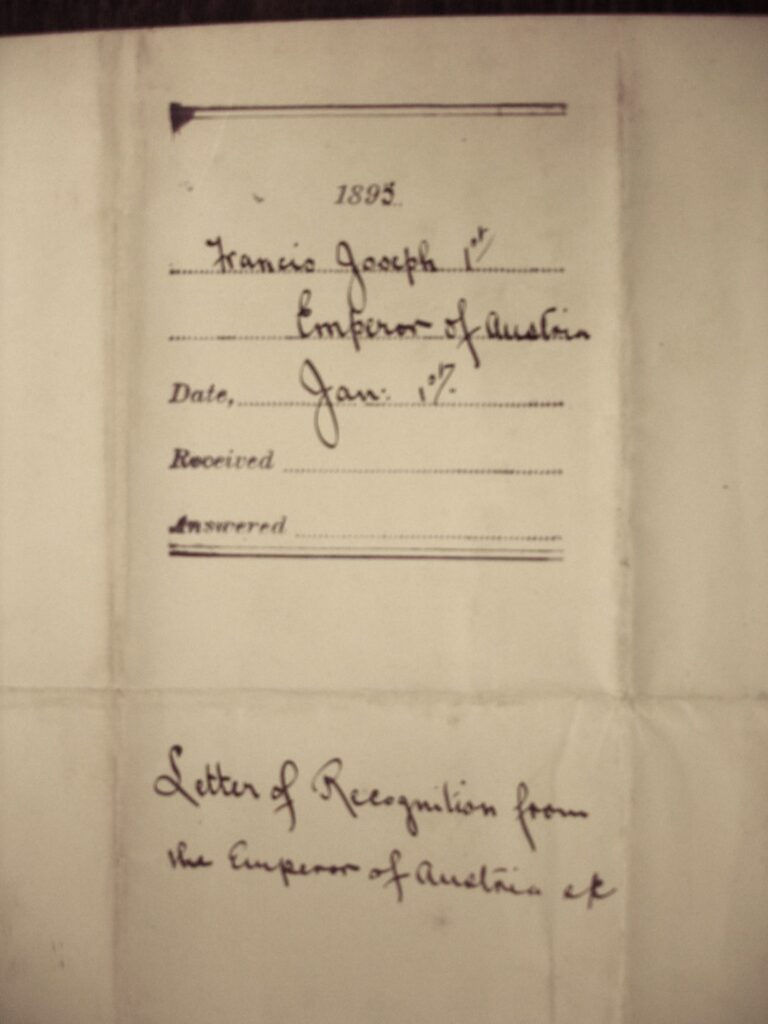 1895.
Francis Joseph 1st
Emperor of Austria
Date, Jan: 1st.
Received
Answered
Letter of Recognition from
the Emperor of Austria etc